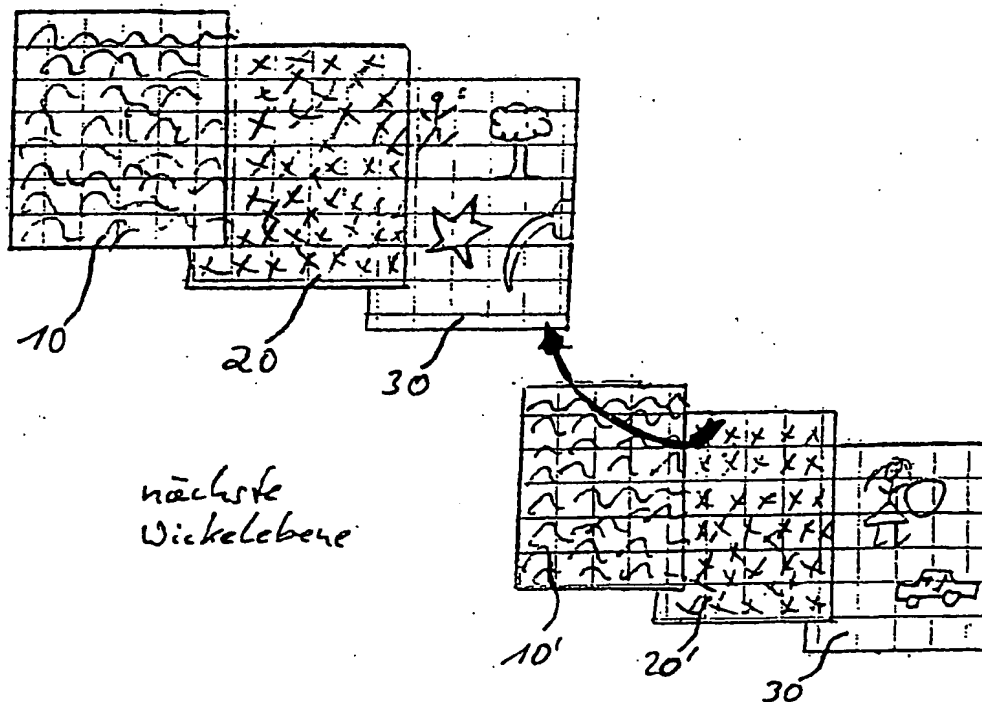 10
20
30
nächste
Wickelebene
10'
20'
30